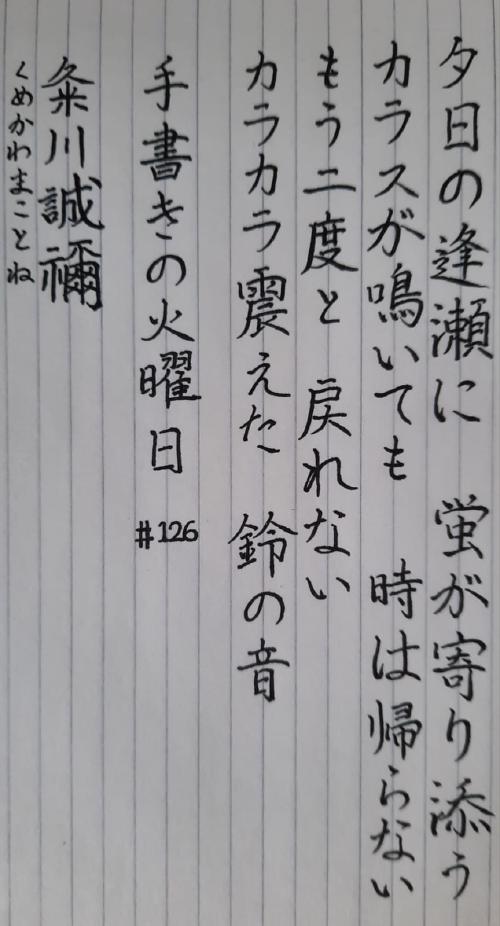 夕日の逢瀬に　蛍が寄り添う
カラスが鳴いても　時は帰らない
もう二度と　戻れない
カラカラ震えた　鈴の音
手書きの火曜日　#126
粂川誠禰
くめかわまことね